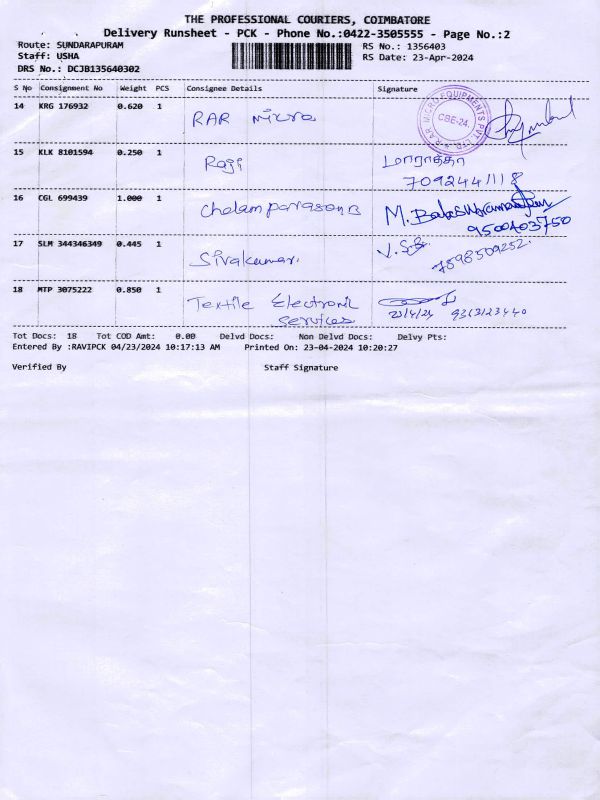 THE PROFESSIONAL COURIERS, COIMBATORE
Delivery Runsheet - PCK - Phone No.:0422-3505555 - Page No.:2
Route: SUNDARAPURAM RS No.: 1356403
Staff: USHA RS Date: 23-Apr-2024
DRS No.: DCJB135640302
S No Consignment No Weight PCS Consignee Details Signature
14 KRG 176932 0.620 1 RAR micro
R AR MICRO EQUIPMENTS PVT. LTD.
CBE-24.
15 KLK 8101594 0.250 1 Raji
7092441118
16 CGL 699439 1.000 1
9500403750
17 SLM 344346349 0.445 1 Sivakumar.
7598509252.
18 MTP 3075222 0.850 1 Textile Electronic
Services
23/4/24 9363123440
Tot Docs: 18 Tot COD Amt: 0.00 Delvd Docs: Non Delvd Docs: Delvy Pts:
Entered By :RAVIPCK 04/23/2024 10:17:13 AM Printed On: 23-04-2024 10:20:27
Verified By Staff Signature